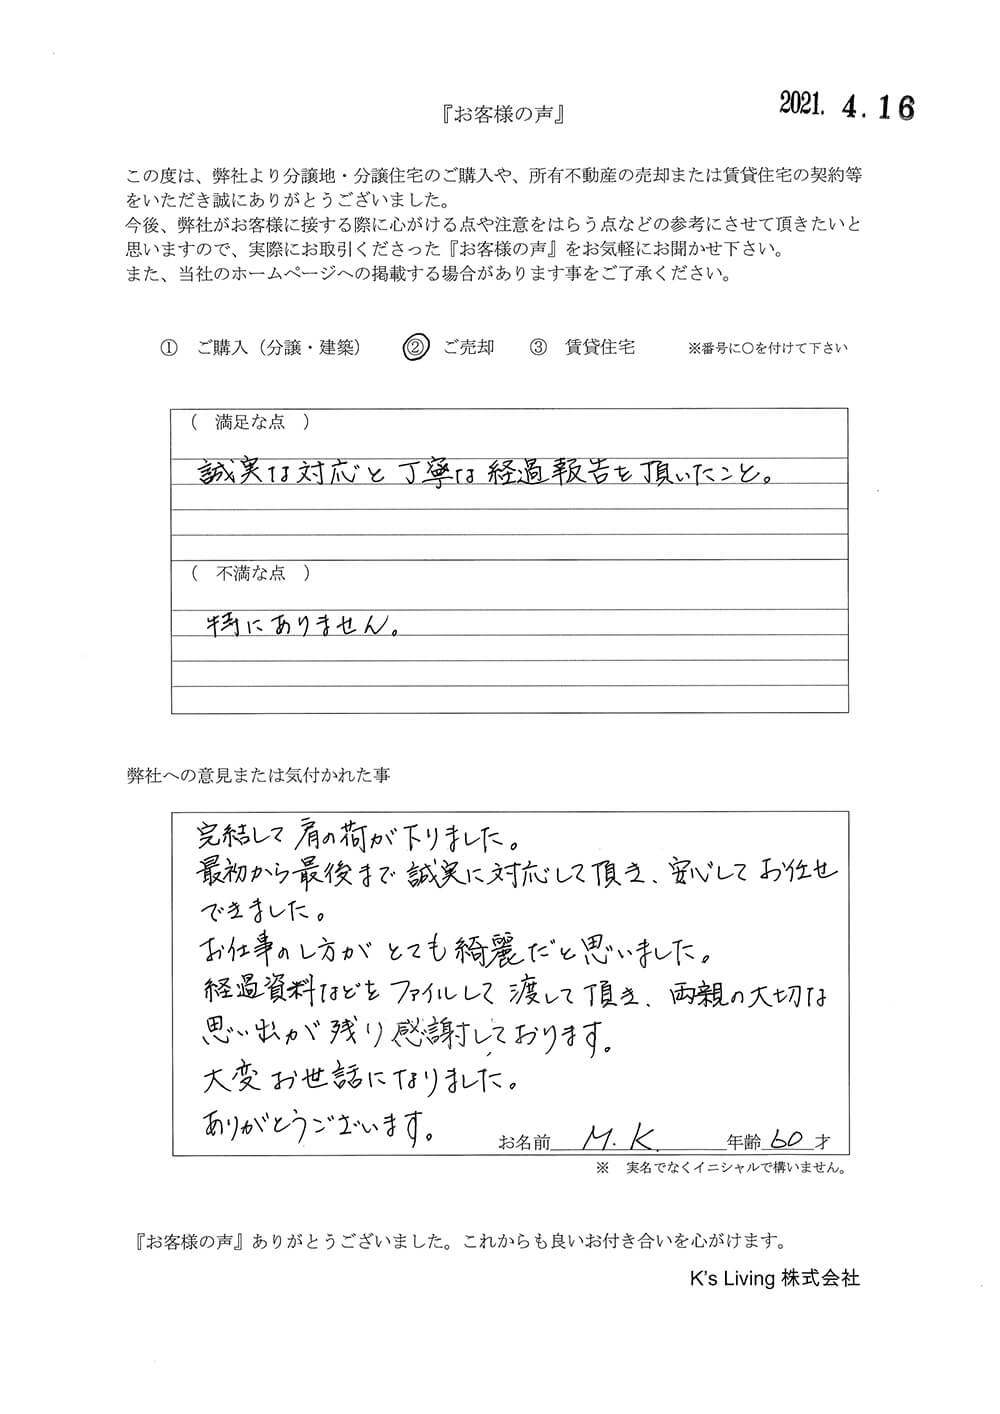 2021. 4.16
『お客様の声』
この度は、弊社より分譲地・分譲住宅のご購入や、所有不動産の売却または賃貸住宅の契約等
をいただき誠にありがとうございました。
今後、弊社がお客様に接する際に心がける点や注意をはらう点などの参考にさせて頂きたいと
思いますので、実際にお取引くださった『お客様の声』をお気軽にお聞かせ下さい。
また、当社のホームページへの掲載する場合があります事をご了承ください。
① ご購入（分譲・建築） ② ご売却 ③ 賃貸住宅 ※番号に○を付けて下さい
（ 満足な点 ）
誠実な対応と丁寧な経過報告を頂いたこと。
（ 不満な点 ）
特にありません。
弊社への意見または気付かれた事
完結して肩の荷が下りました。
最初から最後まで誠実に対応して頂き、安心してお任せ
できました。
お仕事のし方がとても綺麗だと思いました。
経過資料などをファイルして渡して頂き、両親の大切な
思い出が残り感謝しております。
大変お世話になりました。
ありがとうございます。
お名前 M.K. 年齢 60 才
※ 実名でなくイニシャルで構いません。
『お客様の声』ありがとうございました。これからも良いお付き合いを心がけます。
K's Living 株式会社